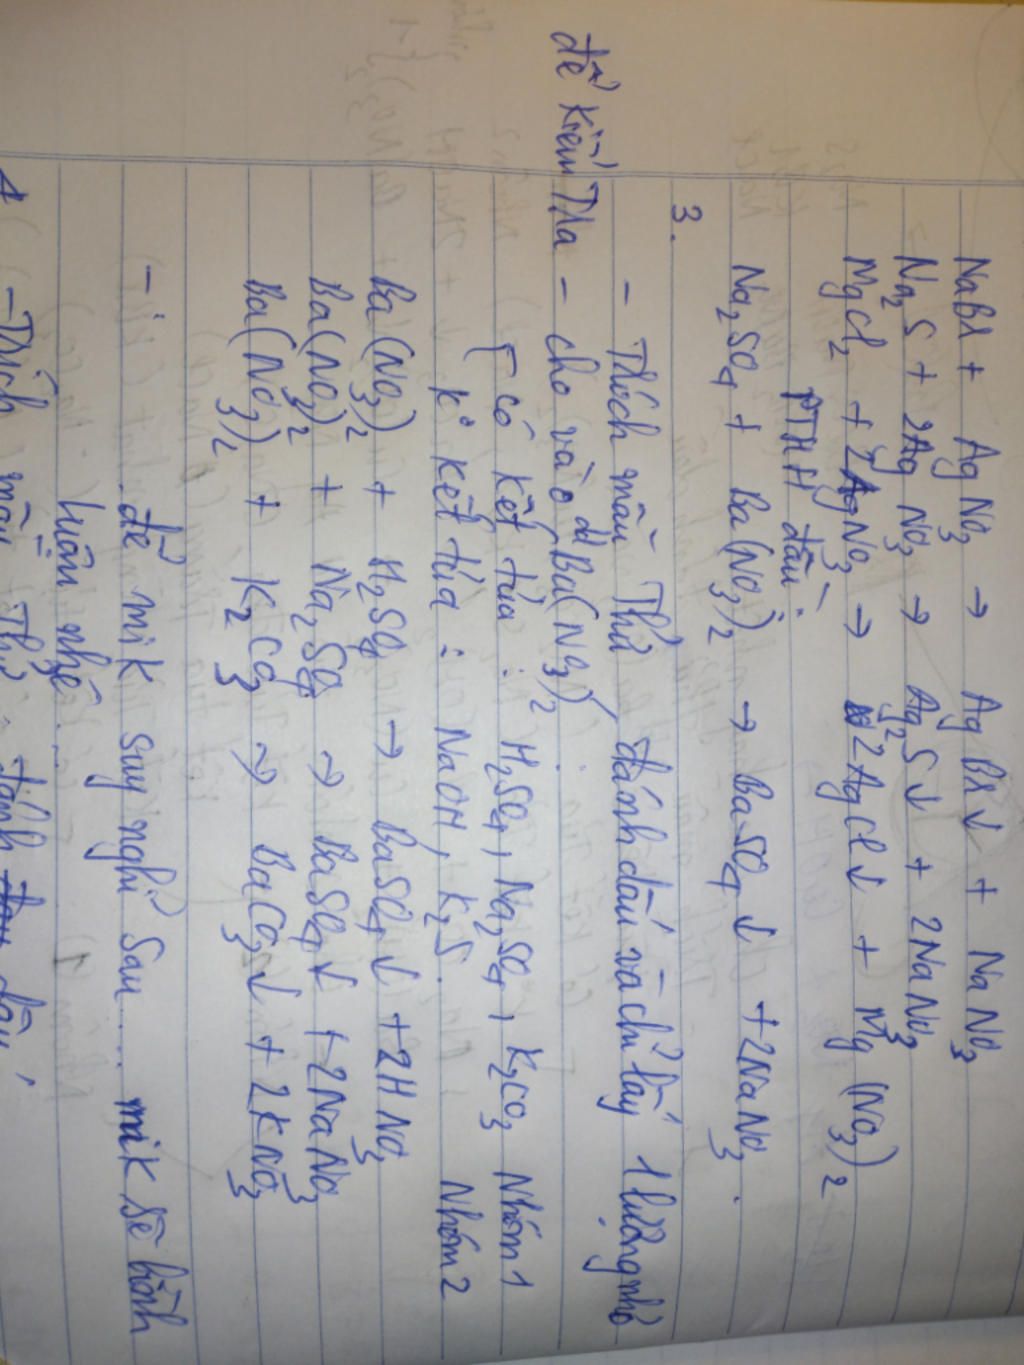 NaBr + AgNO3 → AgBr↓ + NaNO3
Na2S + 2AgNO3 → Ag2S↓ + 2NaNO3
MgCl2 + 2AgNO3 → 2AgCl↓ + Mg(NO3)2
PTHH đầu.
Na2SO4 + Ba(NO3)2 → BaSO4↓ + 2NaNO3.
3.
- Trích mẫu Thử, đánh dấu và chỉ lấy 1 lượng nhỏ
để kiểm Tra - cho vào dd Ba(NO3)2.
có kết tủa : H2SO4, Na2SO4, K2CO3 Nhóm 1
K° kết tủa : NaOH, K2S. Nhóm 2
Ba(NO3)2 + H2SO4 → BaSO4↓ + 2HNO3
Ba(NO3)2 + Na2SO4 → BaSO4↓ + 2NaNO3
Ba(NO3)2 + K2CO3 → BaCO3↓ + 2KNO3
- để mik suy nghĩ sau.... mik sẽ bình
luận nhé...
4 - Trích mẫu Thử, đánh dấu,